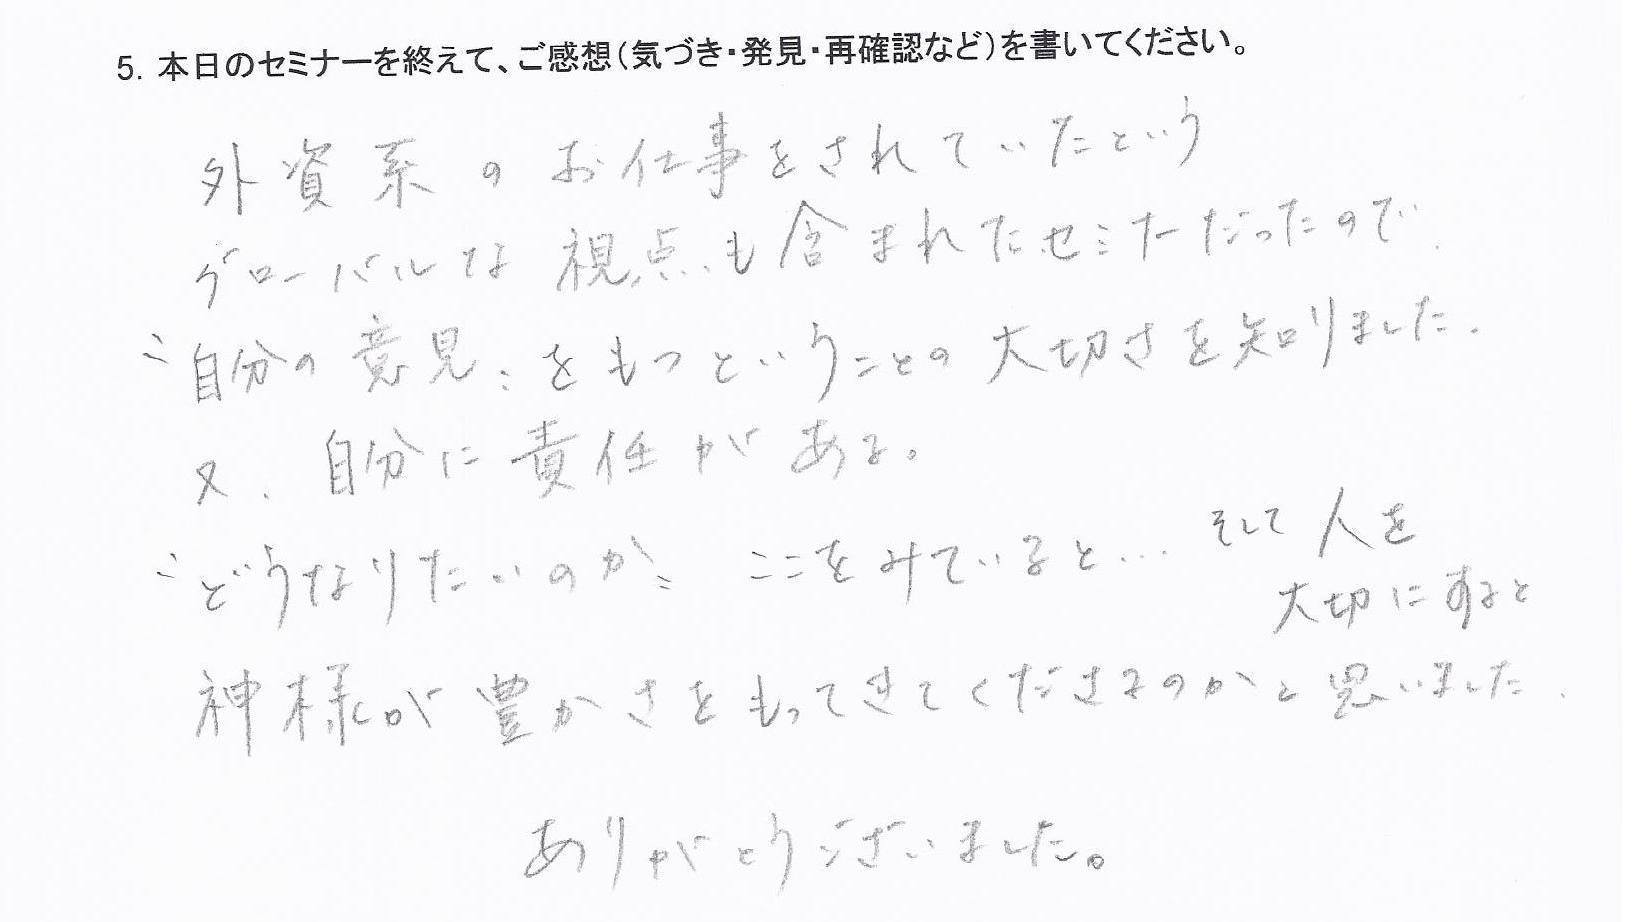 5. 本日のセミナーを終えて、ご感想(気づき・発見・再確認など)を書いてください。
外資系のお仕事をされていたという
グローバルな視点も含まれたセミナーだったので、
〝自分の意見〟をもつということの大切さを知りました。
又、自分に責任がある。
〝どうなりたいのか〟ここをみていると… そして人を
大切にすると
神様が豊かさをもってきてくださるのかと思いました。
ありがとうございました。